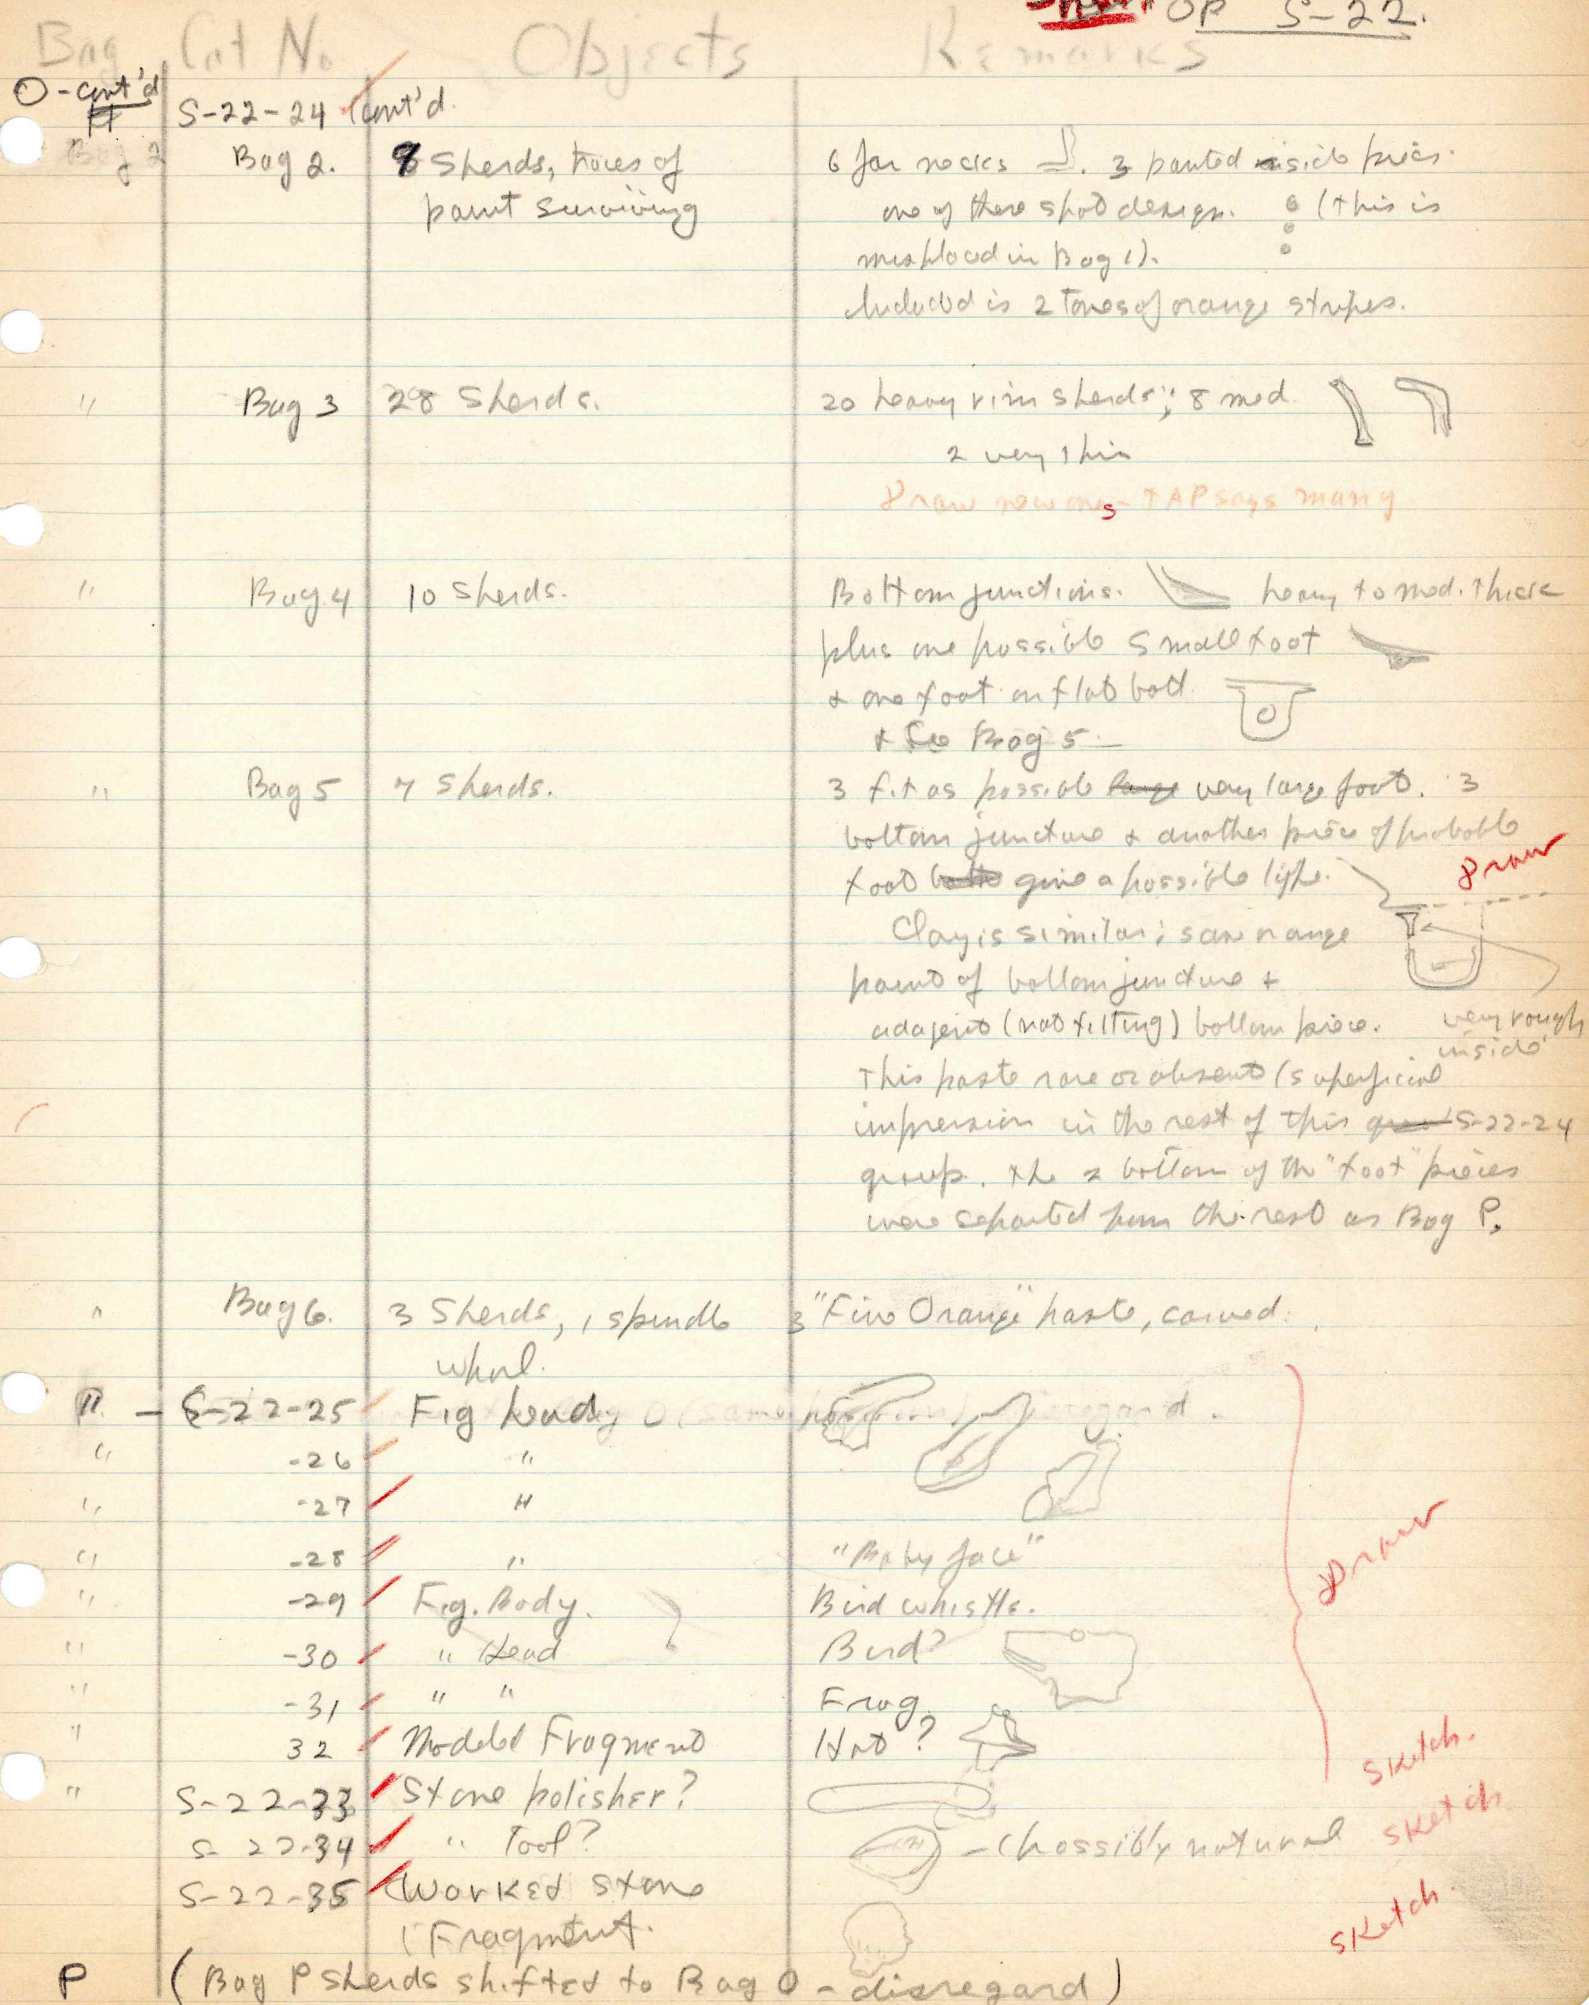 OP S-22.
Bag Cat No. Objects Remarks
O-cont'd
S-22-24 cont'd.
Bag 2. Sherds, traces of 6 jar necks. 3 painted inside pieces.
paint surviving one of these spot design. (this is
misplaced in Bag 1).
Included is 2 tones of orange stripes.
" Bag 3 28 Sherds. 20 heavy rim sherds; 8 med.
2 very thin
Draw new ones - TAP says many
" Bag 4 10 Sherds. Bottom junctions. heavy to med. thick
plus one possible small foot
+ one foot on flat bott.
+ See Bag 5 -
" Bag 5 7 Sherds. 3 fit as possible large very large foot. 3
bottom juncture + another piece of probable
foot give a possible life. Draw
Clay is similar; same orange
paint of bottom juncture +
adajent (not fitting) bottom piece. very rough
inside
This paste rare or absent (superficial
impression in the rest of this S-22-24
group. The 2 bottom of the "foot" pieces
were separted from the rest as Bag P.
" Bag 6. 3 Sherds, 1 spindle 3 "Fine Orange" paste, carved.
whorl.
" - S-22-25 Fig head
" -26 "
" -27 "
" -28 " "Baby face"
" -29 Fig. Body. Bird whistle. Draw
" -30 " Head Bird?
" -31 " " Frog
" 32 Model Fragment Hat?
" S-22-33 Stone polisher? Sketch.
S-22-34 " Tool? - (possibly natural Sketch
S-22-35 Worked stone
Fragment. Sketch.
P (Bag P sherds shifted to Bag O - disregard)